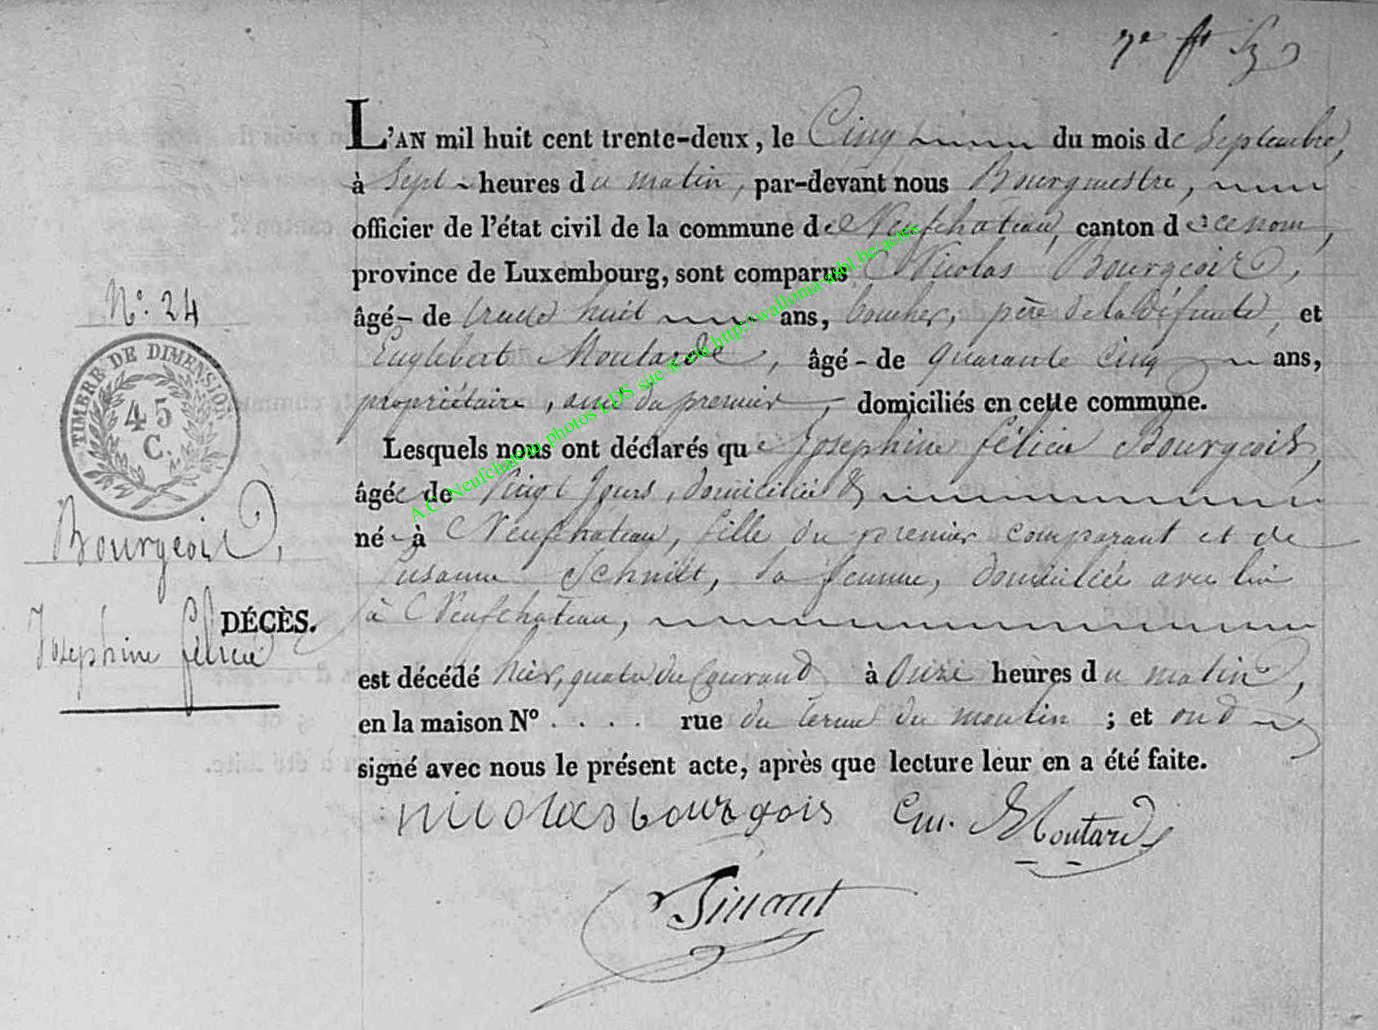 7e ft
L'AN mil huit cent trente-deux, le Cinq du mois de Septembre,
à Sept heures du matin, par-devant nous Bourgmestre,
officier de l'état civil de la commune de Neufchateau, canton de ce nom,
province de Luxembourg, sont comparus Nicolas Bourgeois,
âgé - de trente huit ans, boucher, père de la Défunte, et
Englebert Moutarde, âgé - de quarante cinq ans,
propriétaire, ami du premier, domiciliés en cette commune.
Lesquels nous ont déclarés que Josephine félicie Bourgeois,
âgée de Vingt Jours, domiciliée &
né - à Neufchateau, fille du premier comparant et de
Susanne Schmitt, sa femme, domiciliée avec lui
à Neufchateau,
est décédé hier, quatre du Courant, à Onze heures du matin,
en la maison N° . . . . rue du terme du moulin ; et ont
signé avec nous le présent acte, après que lecture leur en a été faite.
nicolas bourgois Em. Moutarde
N°. 24
TIMBRE DE DIMENSION
45
C.
Bourgeois,
Josephine félicie
DÉCÈS.
A.C. Neufchateau photos LDS site * via http://wallonia-asbl.be/actes